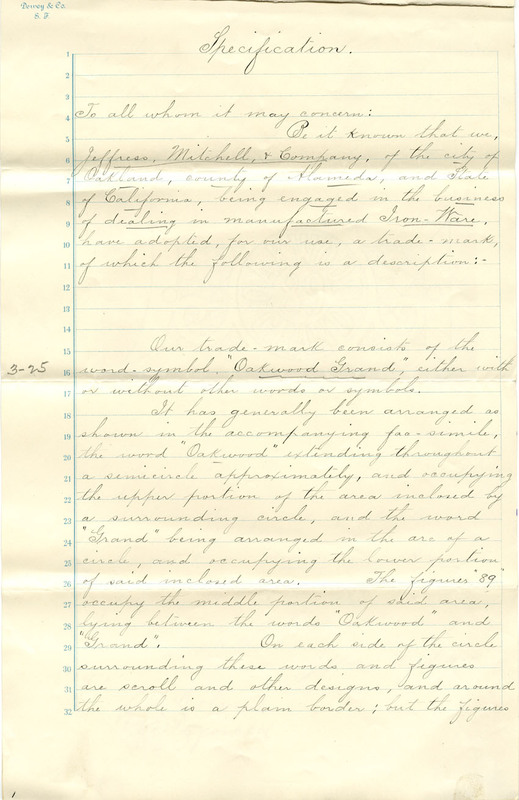 Dewey & Co.
S. F.
Specification.
1
2
3
4 To all whom it may concern:
5 Be it known that we,
6 Jeffress, Mitchell, & Company, of the city of
7 Oakland, county of Alameda, and State
8 of California, being engaged in the business
9 of dealing in manufactured Iron-Ware,
10 have adopted, for our use, a trade-mark,
11 of which the following is a description:-
12
13
14
15 Our trade-mark consists of the
3-25 16 word-symbol "Oakwood Grand", either with
17 or without other words or symbols.
18 It has generally been arranged as
19 shown in the accompanying fac-simile,
20 the word "Oakwood" extending throughout
21 a semicircle approximately, and occupying
22 the upper portion of the area inclosed by
23 a surrounding circle, and the word
24 "Grand" being arranged in the arc of a
25 circle, and occupying the lower portion
26 of said inclosed area. The figures "89"
27 occupy the middle portion of said area,
28 lying between the words "Oakwood" and
29 "Grand". On each side of the circle
30 surrounding these words and figures
31 are scroll and other designs, and around
32 the whole is a plain border; but the figures
1